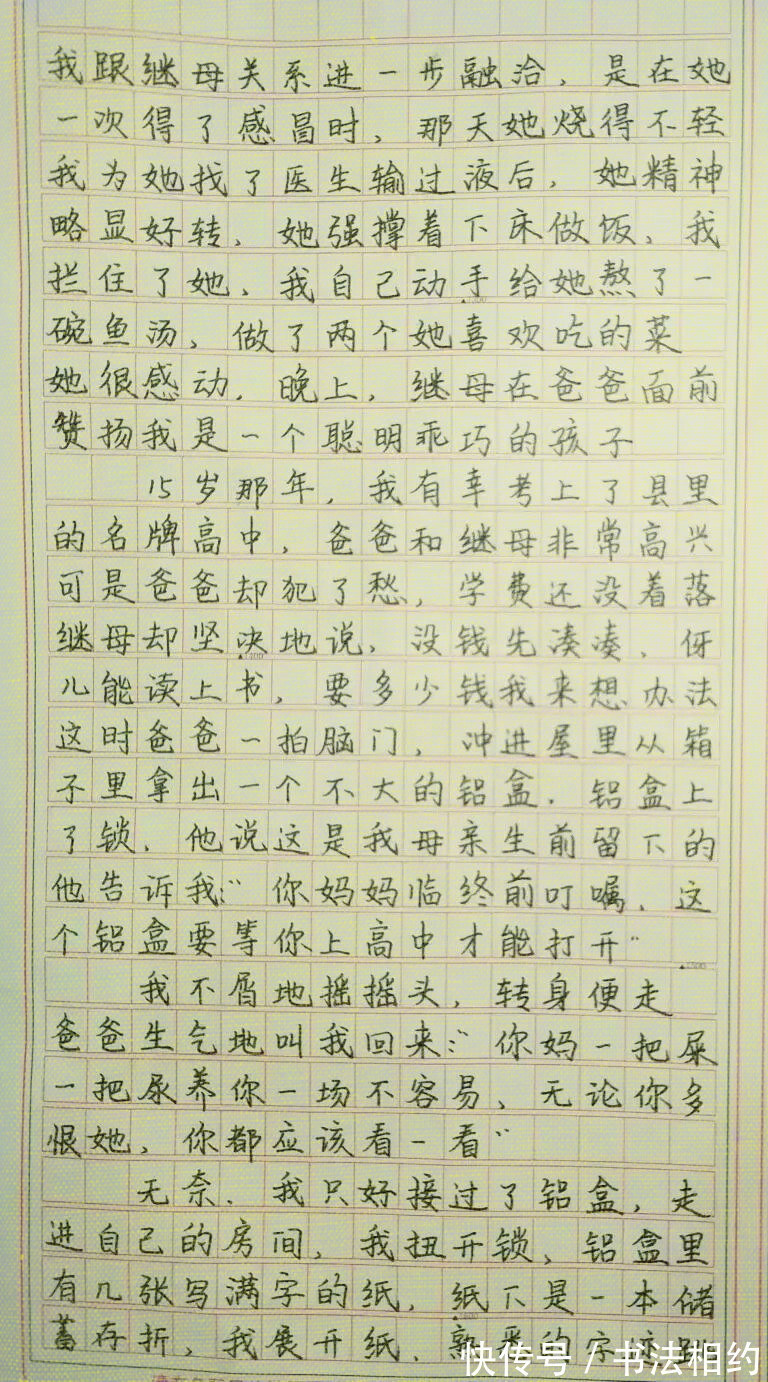 我跟继母关系进一步融洽，是在她
一次得了感冒时，那天她烧得不轻
我为她找了医生输过液后，她精神
略显好转，她强撑着下床做饭，我
拦住了她，我自己动手给她熬了一
碗鱼汤，做了两个她喜欢吃的菜
她很感动，晚上，继母在爸爸面前
赞扬我是一个聪明乖巧的孩子
15岁那年，我有幸考上了县里
的名牌高中，爸爸和继母非常高兴
可是爸爸却犯了愁，学费还没着落
继母却坚决地说，没钱先凑凑，伢
儿能读上书，要多少钱我来想办法
这时爸爸一拍脑门，冲进屋里从箱
子里拿出一个不大的铝盒．铝盒上
了锁．他说这是我母亲生前留下的
他告诉我：“你妈妈临终前叮嘱，这
个铝盒要等你上高中才能打开”
我不屑地摇摇头，转身便走
爸爸生气地叫我回来：“你妈一把屎
一把尿养你一场不容易、无论你多
恨她，你都应该看一看”
无奈．我只好接过了铝盒，走
进自己的房间，我扭开锁，铝盒里
有几张写满字的纸，纸下是一本储
蓄存折，我展开纸．熟悉的字迹
快传号/书法相约